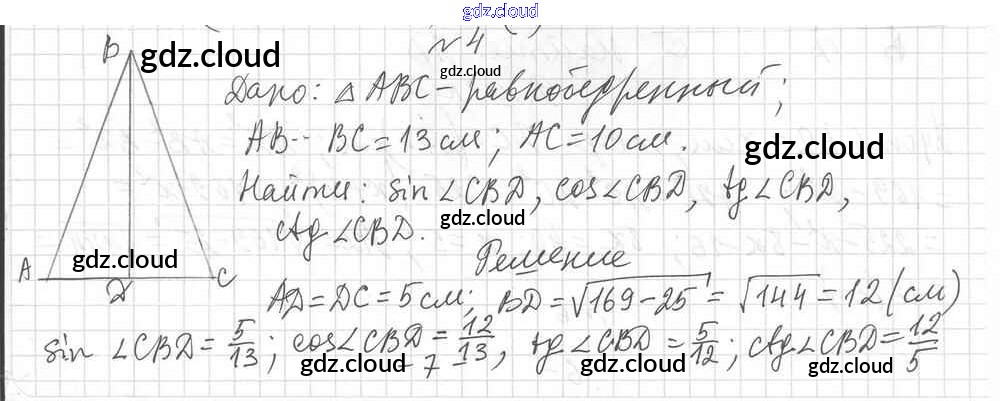 gdz.cloud
№4
B gdz.cloud
gdz.cloud
Дано: △ABC - равнобедренный;
AB = BC = 13 см; AC = 10 см.
gdz.cloud
Найти: sin ∠CBD, cos ∠CBD, tg ∠CBD,
ctg ∠CBD.
gdz.cloud
Решение
gdz.cloud
A D C
AD = DC = 5 см; BD = √169-25 = √144 = 12 (см)
sin ∠CBD = 5/13; cos ∠CBD = 12/13, tg ∠CBD = 5/12; ctg ∠CBD = 12/5
gdz.cloud gdz.cloud gdz.cloud